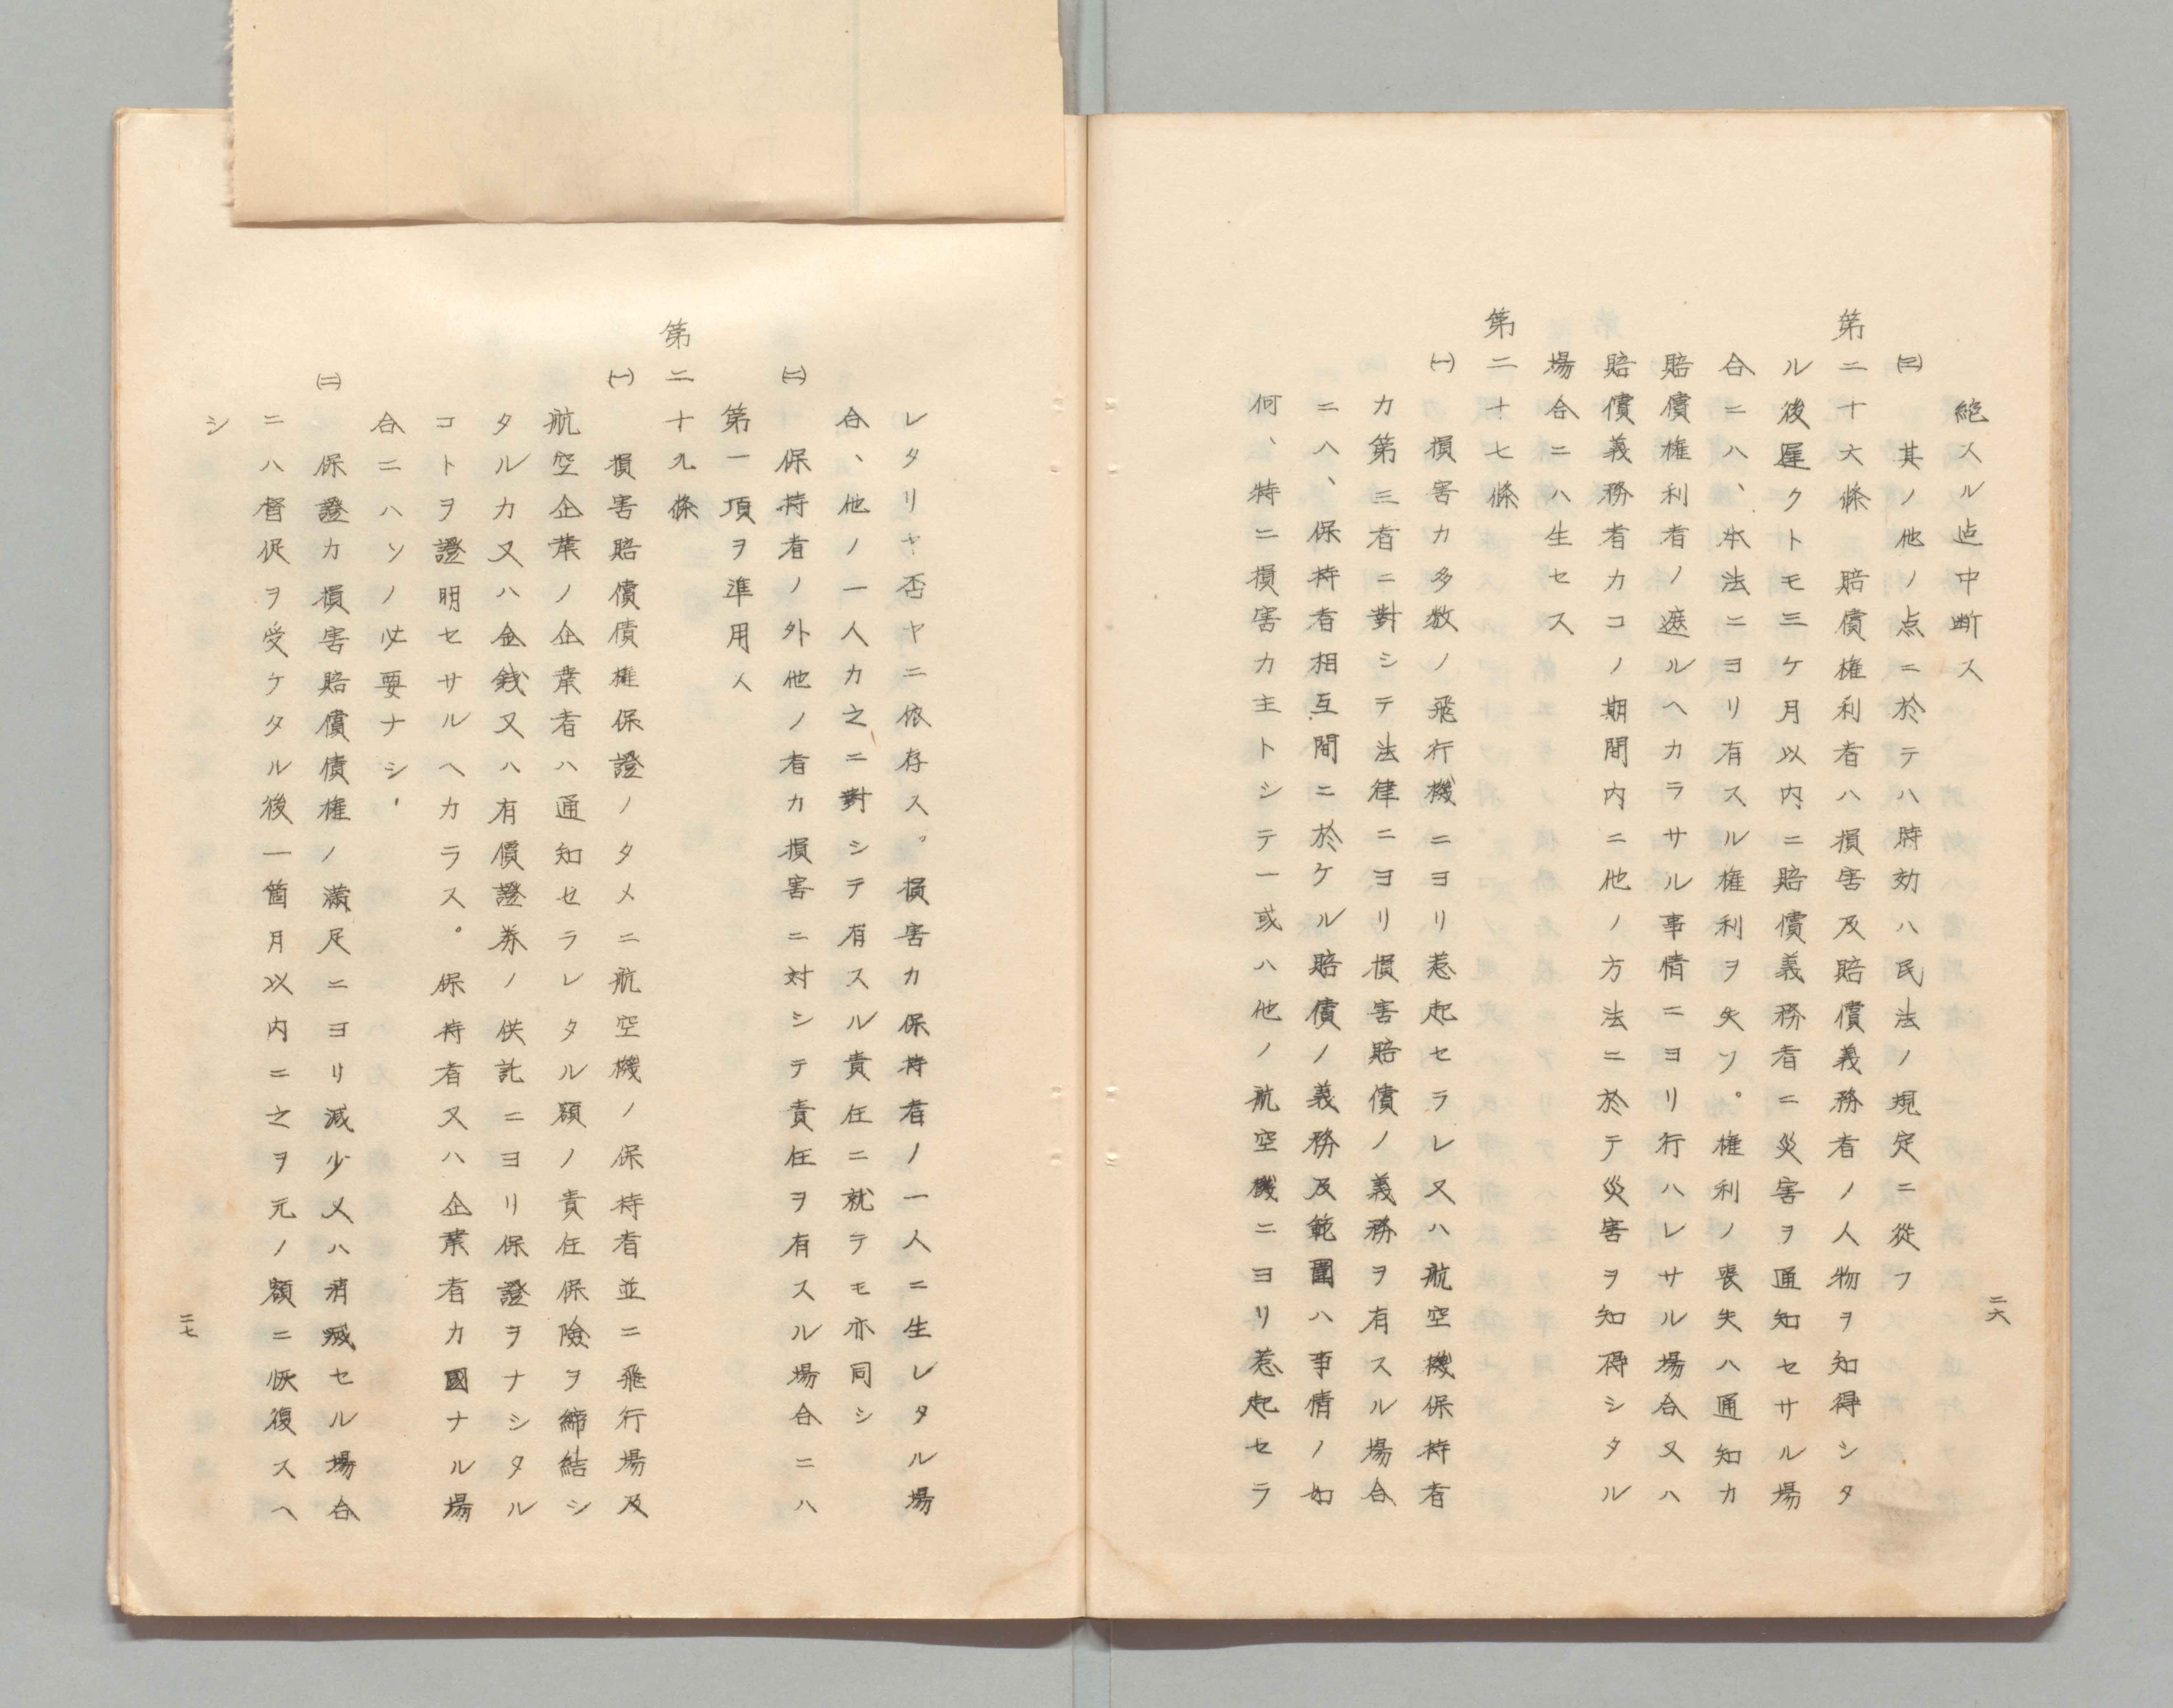 二六
絶スル迄中断ス
㈢ 其ノ他ノ点ニ於テハ時効ハ民法ノ規定ニ從フ
第二十六條 賠償権利者ハ損害及賠償義務者ノ人物ヲ知得シタ
ル後遅クトモ三ケ月以内ニ賠償義務者ニ災害ヲ通知セサル場
合ニハ、本法ニヨリ有スル権利ヲ失フ。権利ノ喪失ハ通知カ
賠償権利者ノ遮ルヘカラサル事情ニヨリ行ハレサル場合又ハ
賠償義務者カコノ期間内ニ他ノ方法ニ於テ災害ヲ知得シタル
場合ニハ生セス
第二十七條
㈠ 損害カ多数ノ飛行機ニヨリ惹起セラレ又ハ航空機保持者
カ第三者ニ對シテ法律ニヨリ損害賠償ノ義務ヲ有スル場合
ニハ、保持者相互間ニ於ケル賠償ノ義務及範圍ハ事情ノ如
何、特ニ損害カ主トシテ一或ハ他ノ航空機ニヨリ惹起セラ
レタリヤ否ヤニ依存ス。損害カ保持者ノ一人ニ生レタル場
合、他ノ一人カ之ニ對シテ有スル責任ニ就テモ亦同シ
㈡ 保持者ノ外他ノ者カ損害ニ対シテ責任ヲ有スル場合ニハ
第一項ヲ準用ス
第二十九條
㈠ 損害賠償債権保證ノタメニ航空機ノ保持者並ニ飛行場及
航空企業ノ企業者ハ通知セラレタル額ノ責任保険ヲ締結シ
タルカ又ハ金銭又ハ有價證券ノ供託ニヨリ保證ヲナシタル
コトヲ證明セサルヘカラス。保持者又ハ企業者カ國ナル場
合ニハソノ必要ナシ、
㈡ 保證カ損害賠償債権ノ満足ニヨリ減少又ハ消滅セル場合
ニハ督促ヲ受ケタル後一箇月以内ニ之ヲ元ノ額ニ恢復スヘ
シ
二七